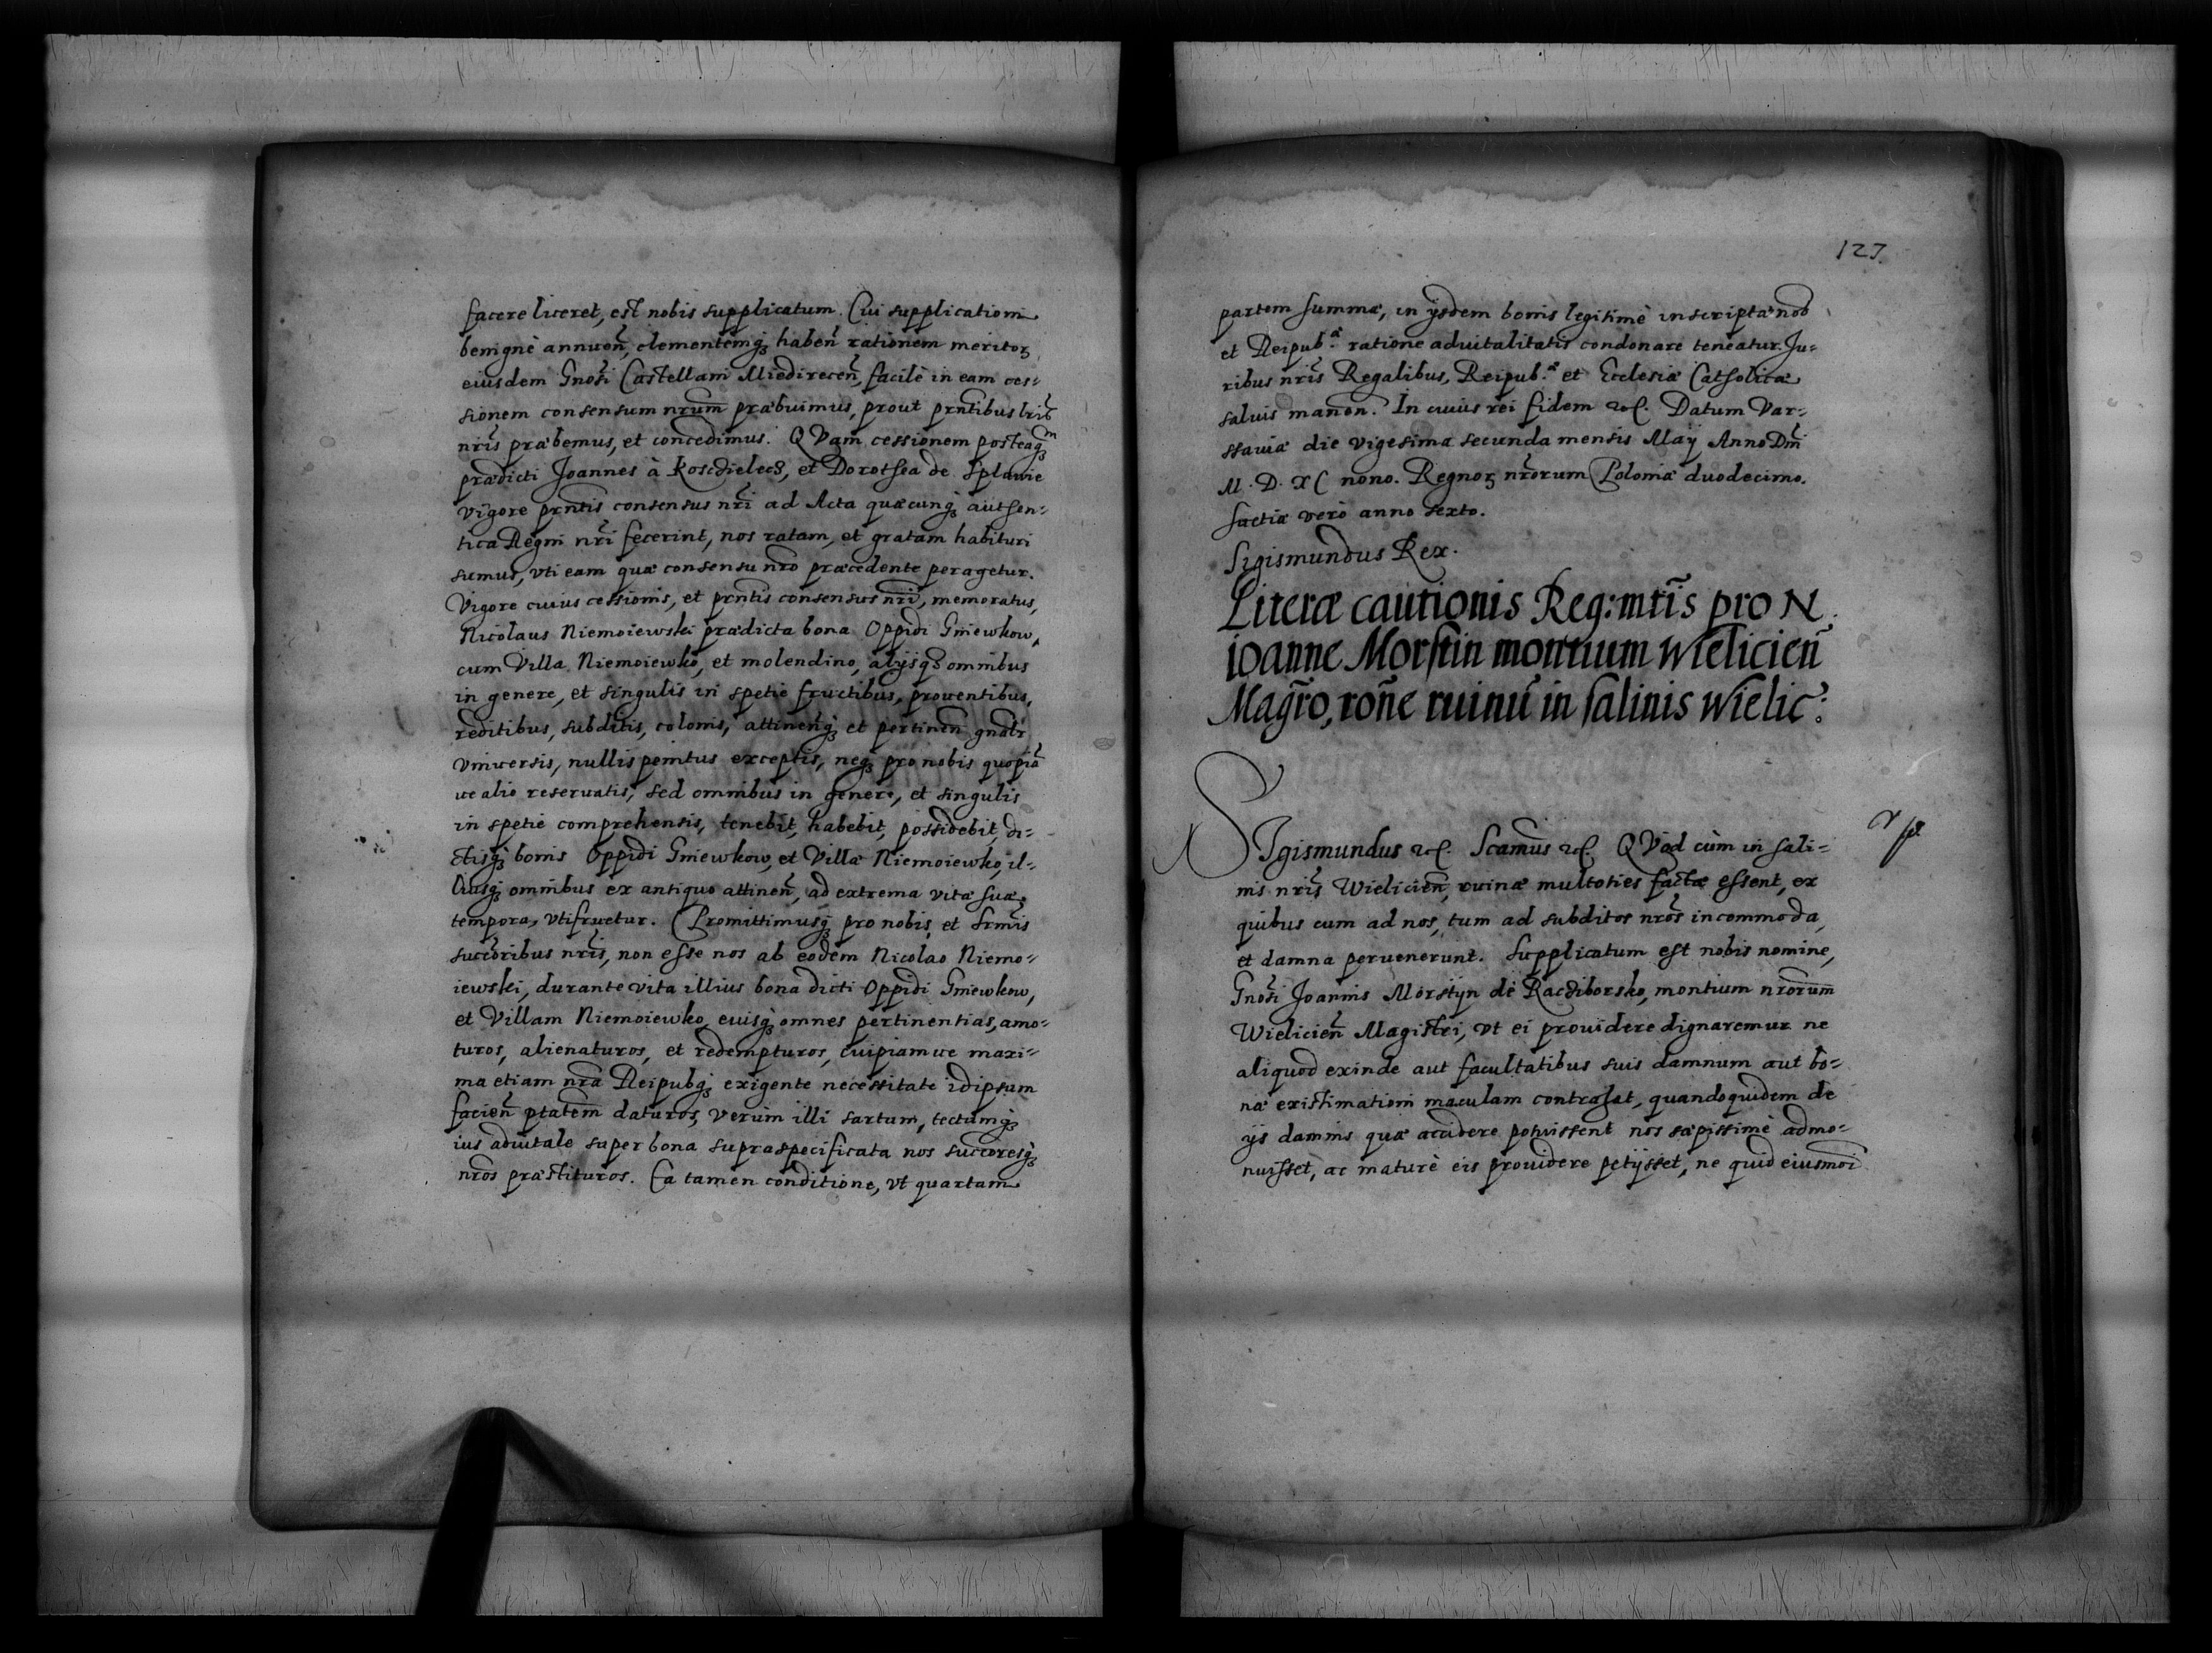 facere liceret, est nobis supplicatum. Cui supplicationi
benignè annuen̄, clementemq́ȝ haben̄ rationem meritoꝝ
eiusdem Gnosi Castellani Miedirecen̄, facilè in eam ces-
sionem consensum nrum præbuimus, prout prntibus lris
nris præbemus, et concedimus. QVam cessionem posteaqȝm
prædicti Joannes à Koscdielecz, et Dorothea de Splawie
vigore prntis consensus nri ad Acta quæcunqȝ authen-
tica Regni nri fecerint, nos ratam, et gratam habituri
sumus, vti eam quæ consensu nro præcedente peragetur.
Vigore cuius cessionis, et prntis consensus nri, memoratus,
Nicolaus Niemoiewski prædicta bona Oppidi Gniewkow,
cum Villa Niemoiewko, et molendino, alijsqȝ omnibus
in genere, et singulis in spetie fructibus, prouentibus,
reditibus, subditis, colonis, attinen̄qȝ et pertinen̄ gnalr
vniuersis, nullis penitus exceptis, neqȝ pro nobis quopiā
ue alio reseruatis, sed omnibus in genere, et singulis
in spetie comprehensis, tenebit, habebit, possidebit, di-
ctisqȝ bonis Oppidi Gniewkow, et Villæ Niemoiewko, il-
liusqȝ omnibus ex antiquo attinen̄, ad extrema vitæ suæ
tempora, vtifruetur. Promittimusqȝ pro nobis, et Srmis
succoribus nris, non esse nos ab eodem Nicolao Niemo-
iewski, durante vita illius bona dicti Oppidi Gniewkow,
et Villam Niemoiewko, euisqȝ omnes pertinentias, amo-
turos, alienaturos, et redempturos, cuipiamue maxi-
ma etiam nra Reipubqȝ exigente necessitate idipsum
facien̄ ptatem daturos, verùm illi sartum, tectumqȝ
ius aduitale super bona supraspecificata nos succoresqȝ
nros præstituros. Ea tamen conditione, vt quartam
127
partem summæ, in ijsdem bonis legitimè inscriptæ nob
et Reipub.æ ratione aduitalitatis condonare teneatur. Ju-
ribus nris Regalibus, Reipub.æ et Ecclesiæ Catholicæ
saluis manen̄. In cuius rei fidem etc. Datum Var-
ssauiæ die vigesima secunda mensis Maij Anno Dni
M. D. XC nono. Regnoꝝ nrorum Poloniæ duodecimo.
Suetiæ verò anno sexto.
Sigismundus Rex.
Literæ cautionis Reg: mtis pro N
ioanne Morstin montium Wielicien̄
Magro, rone ruinū in salinis Wielic:
SIgismundus etc. Scamus etc. QVod cùm in sali-
nis nris Wielicien̄, ruinæ multoties factæ essent, ex
quibus cum ad nos, tum ad subditos nros incommoda,
et damna peruenerunt. Supplicatum est nobis nomine,
Gnosi Joannis Morstyn de Racdiborsko, montium nrorum
Wielicien̄ Magistri, vt ei prouidere dignaremur ne
aliquod exinde aut facultatibus suis damnum aut bo-
næ existimationi maculam contrahat, quandoquidem de
ijs damnis quæ accidere potuissent nos sæpissimè admo-
nuisset, ac maturè eis prouidere petijsset, ne quid eiusmoi